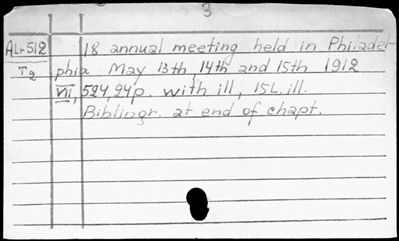 3
ALr 512 18 annual meeting held in Philadel-
T2 phia May 13th, 14th and 15th 1912
VII, 524, 24p. with ill, 15 L. ill.
Bibliogr. at end of chapt.